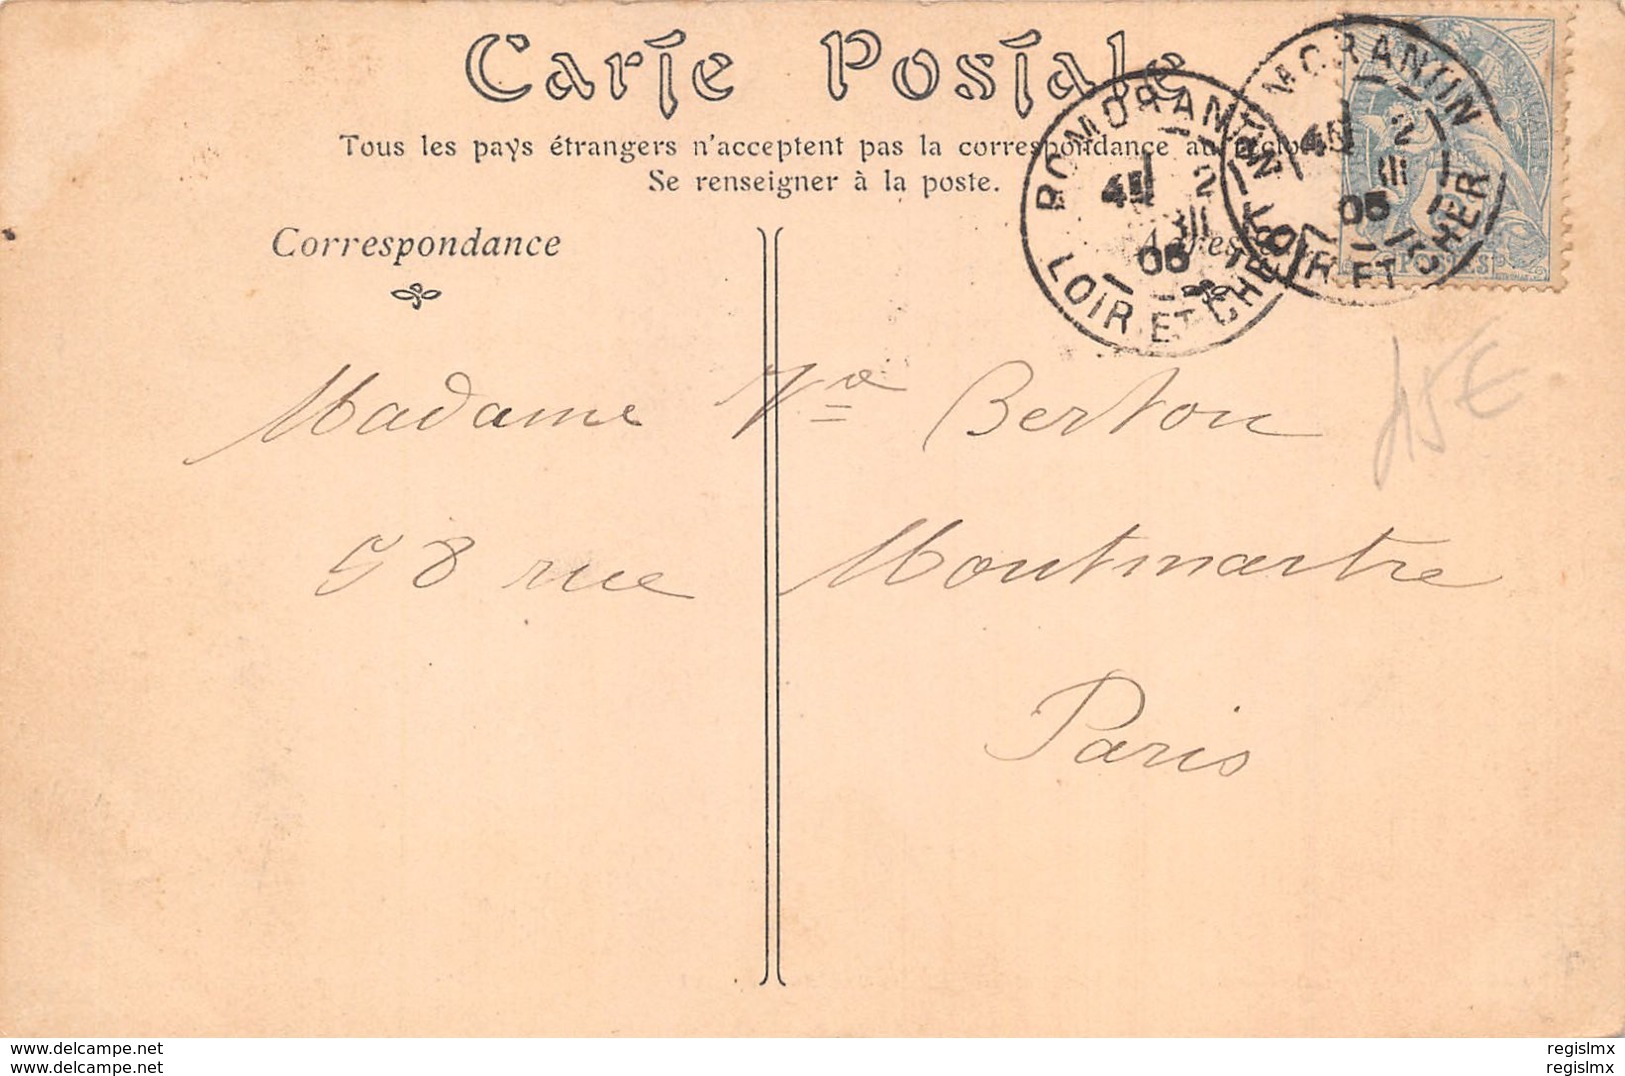 Carte Postale
Tous les pays étrangers n'acceptent pas la correspondance au
Se renseigner à la poste.
Correspondance
ROMORANTIN
2
III
05
LOIR ET CHER
MORANTIN
2
III
05
LOIR ET CHER
POSTES
15€
Madame Vve Berton
58 rue Montmartre
Paris
www.delcampe.net
www.delcampe.net
regislmx
regislmx